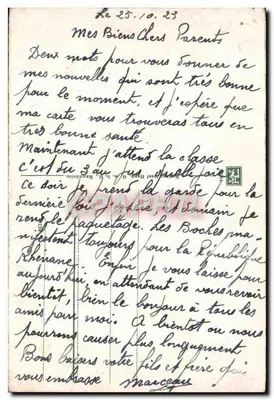 Le 25.10.23
Mes Biens Chers Parents
Deux mots pour vous donner de
mes nouvelles qui sont très bonne
pour le moment, et j'espère que
ma carte vous trouveras tous en
très bonne santé.
Maintenant j'attend la classe
c'est du 3 au quelle joie
Ce soir je prend la garde pour la
dernière fois et demain je
rend le paquetage. Les Boches ma-
nifestent toujours pour la République
Rhénane. Enfin Je vous laisse pour
aujourd'hui, en attendant de vous revoir
bientôt, bien le bonjour à tous les
amis pour moi. A bientôt ou nous
pourrons causer plus longuement
Bons baisers votre fils et frère qui
vous embrasse Marceau